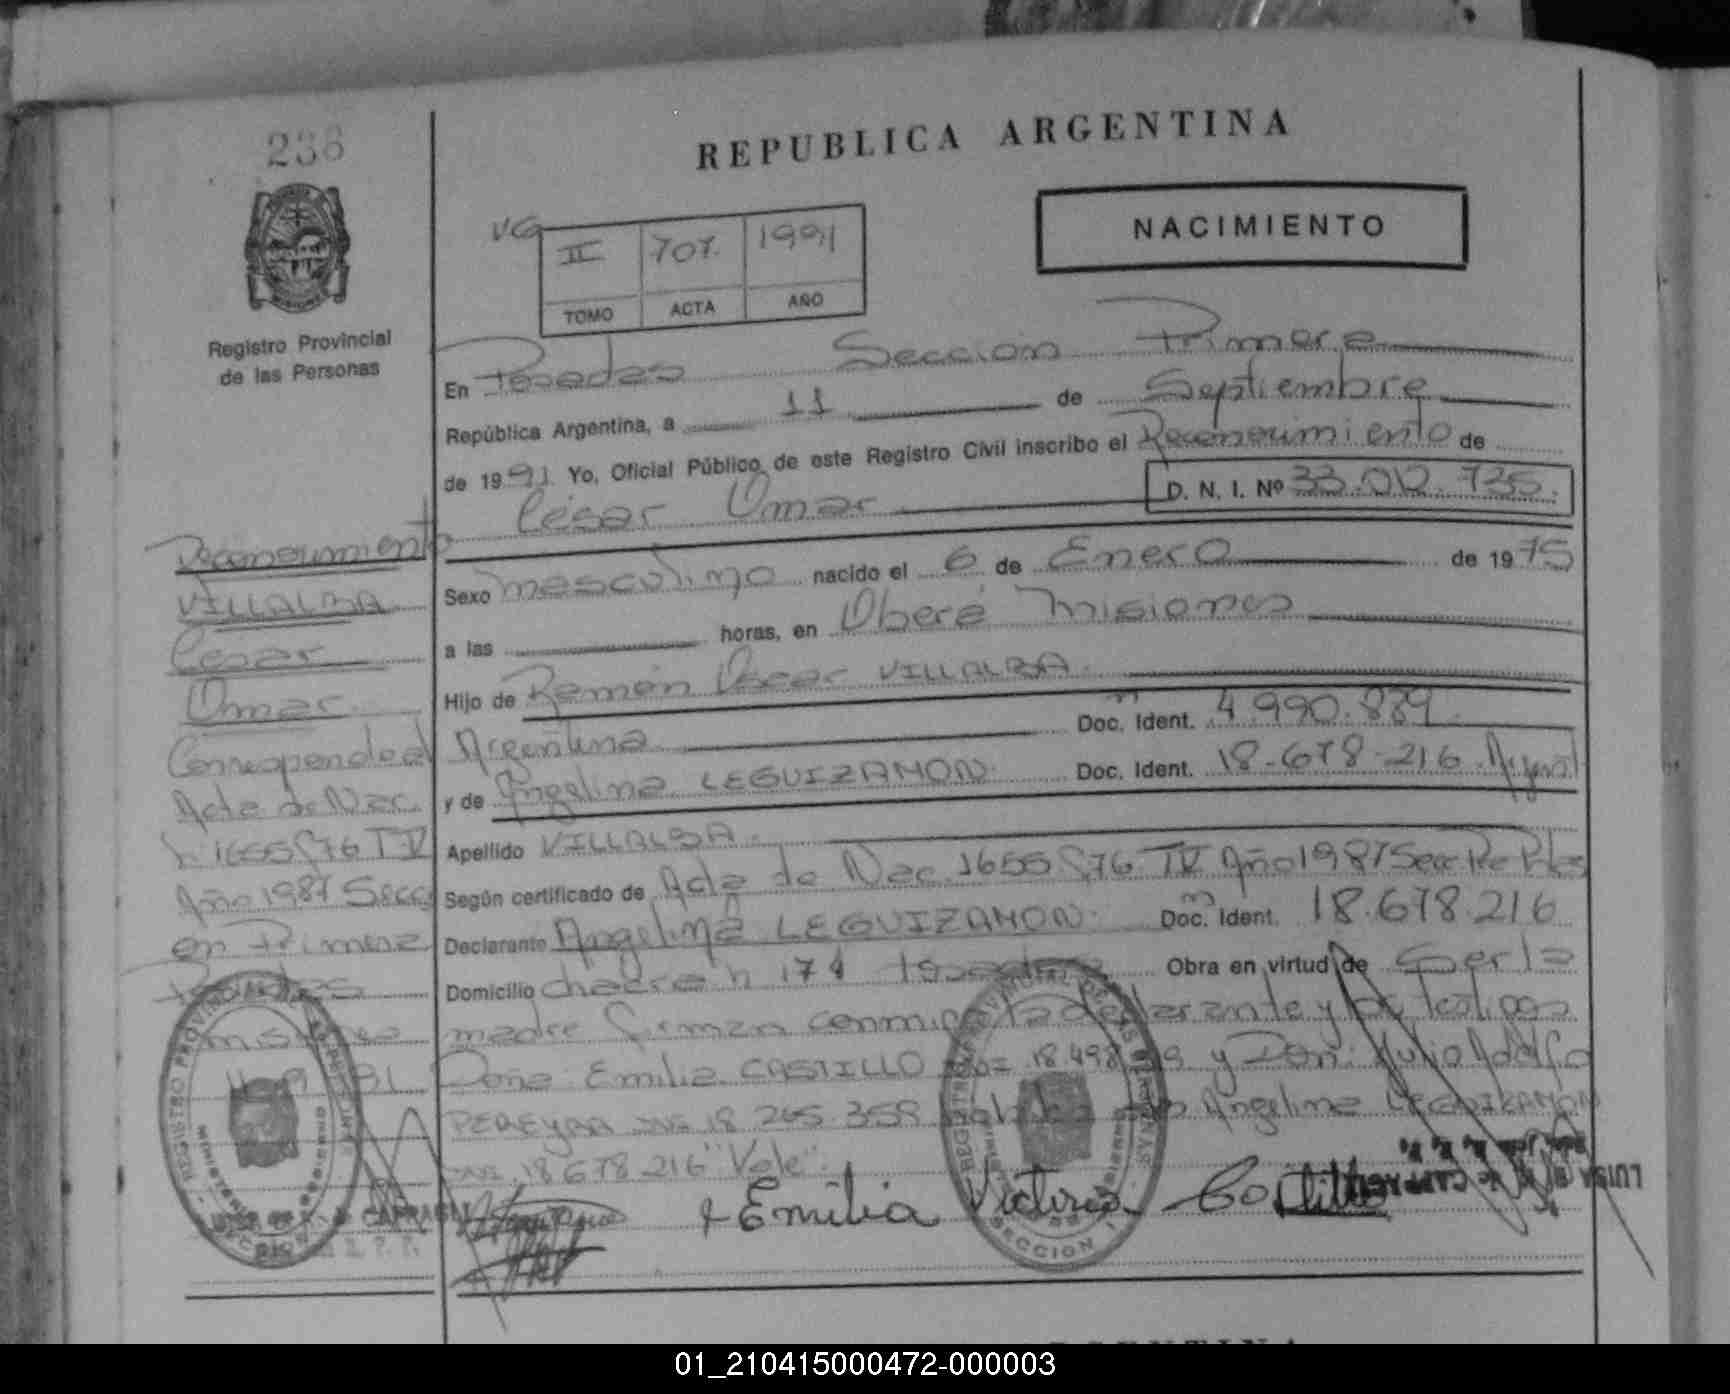 238
REPUBLICA ARGENTINA
NACIMIENTO
VG
II 707. 1991
TOMO ACTA AÑO
Registro Provincial
de las Personas
En Posadas Sección Primera
República Argentina, a 11 de Septiembre
de 1991 Yo, Oficial Público de este Registro Civil inscribo el Reconocimiento de
César Omar D. N. I. Nº 33.012.735.
Sexo masculino nacido el 6 de Enero de 1975
a las horas, en Oberá Misiones
Hijo de Ramón Oscar VILLALBA.
Argentina Doc. Ident. 4.990.889.
y de Angelina LEGUIZAMON Doc. Ident. 18.678.216
Apellido VILLALBA.
Según certificado de Acta de Nac. 1655 f76 T IV Año 1987 Secc
Declarante Angelina LEGUIZAMON. Doc. Ident. 18.678.216
Domicilio chacra n 174 Posadas Obra en virtud de Ser la
madre firman conmigo la declarante y los testigos
Doña: Emilia CASTILLO y Don: Julio Adolfo
PEREYRA DNI. 18.245.358 Angelina LEGUIZAMON
DNI. 18.678.216 "Vale".
Reconocimiento
VILLALBA
César
Omar.
Corresponde al
Acta de Nac.
n 1655 f76 T-IV
Año 1987 Secc
en Primera
Posadas
Misiones
11-9-91
Emilia Victoria Castillo
REGISTRO PROVINCIAL DE LAS PERSONAS
SECCION
01_210415000472-000003